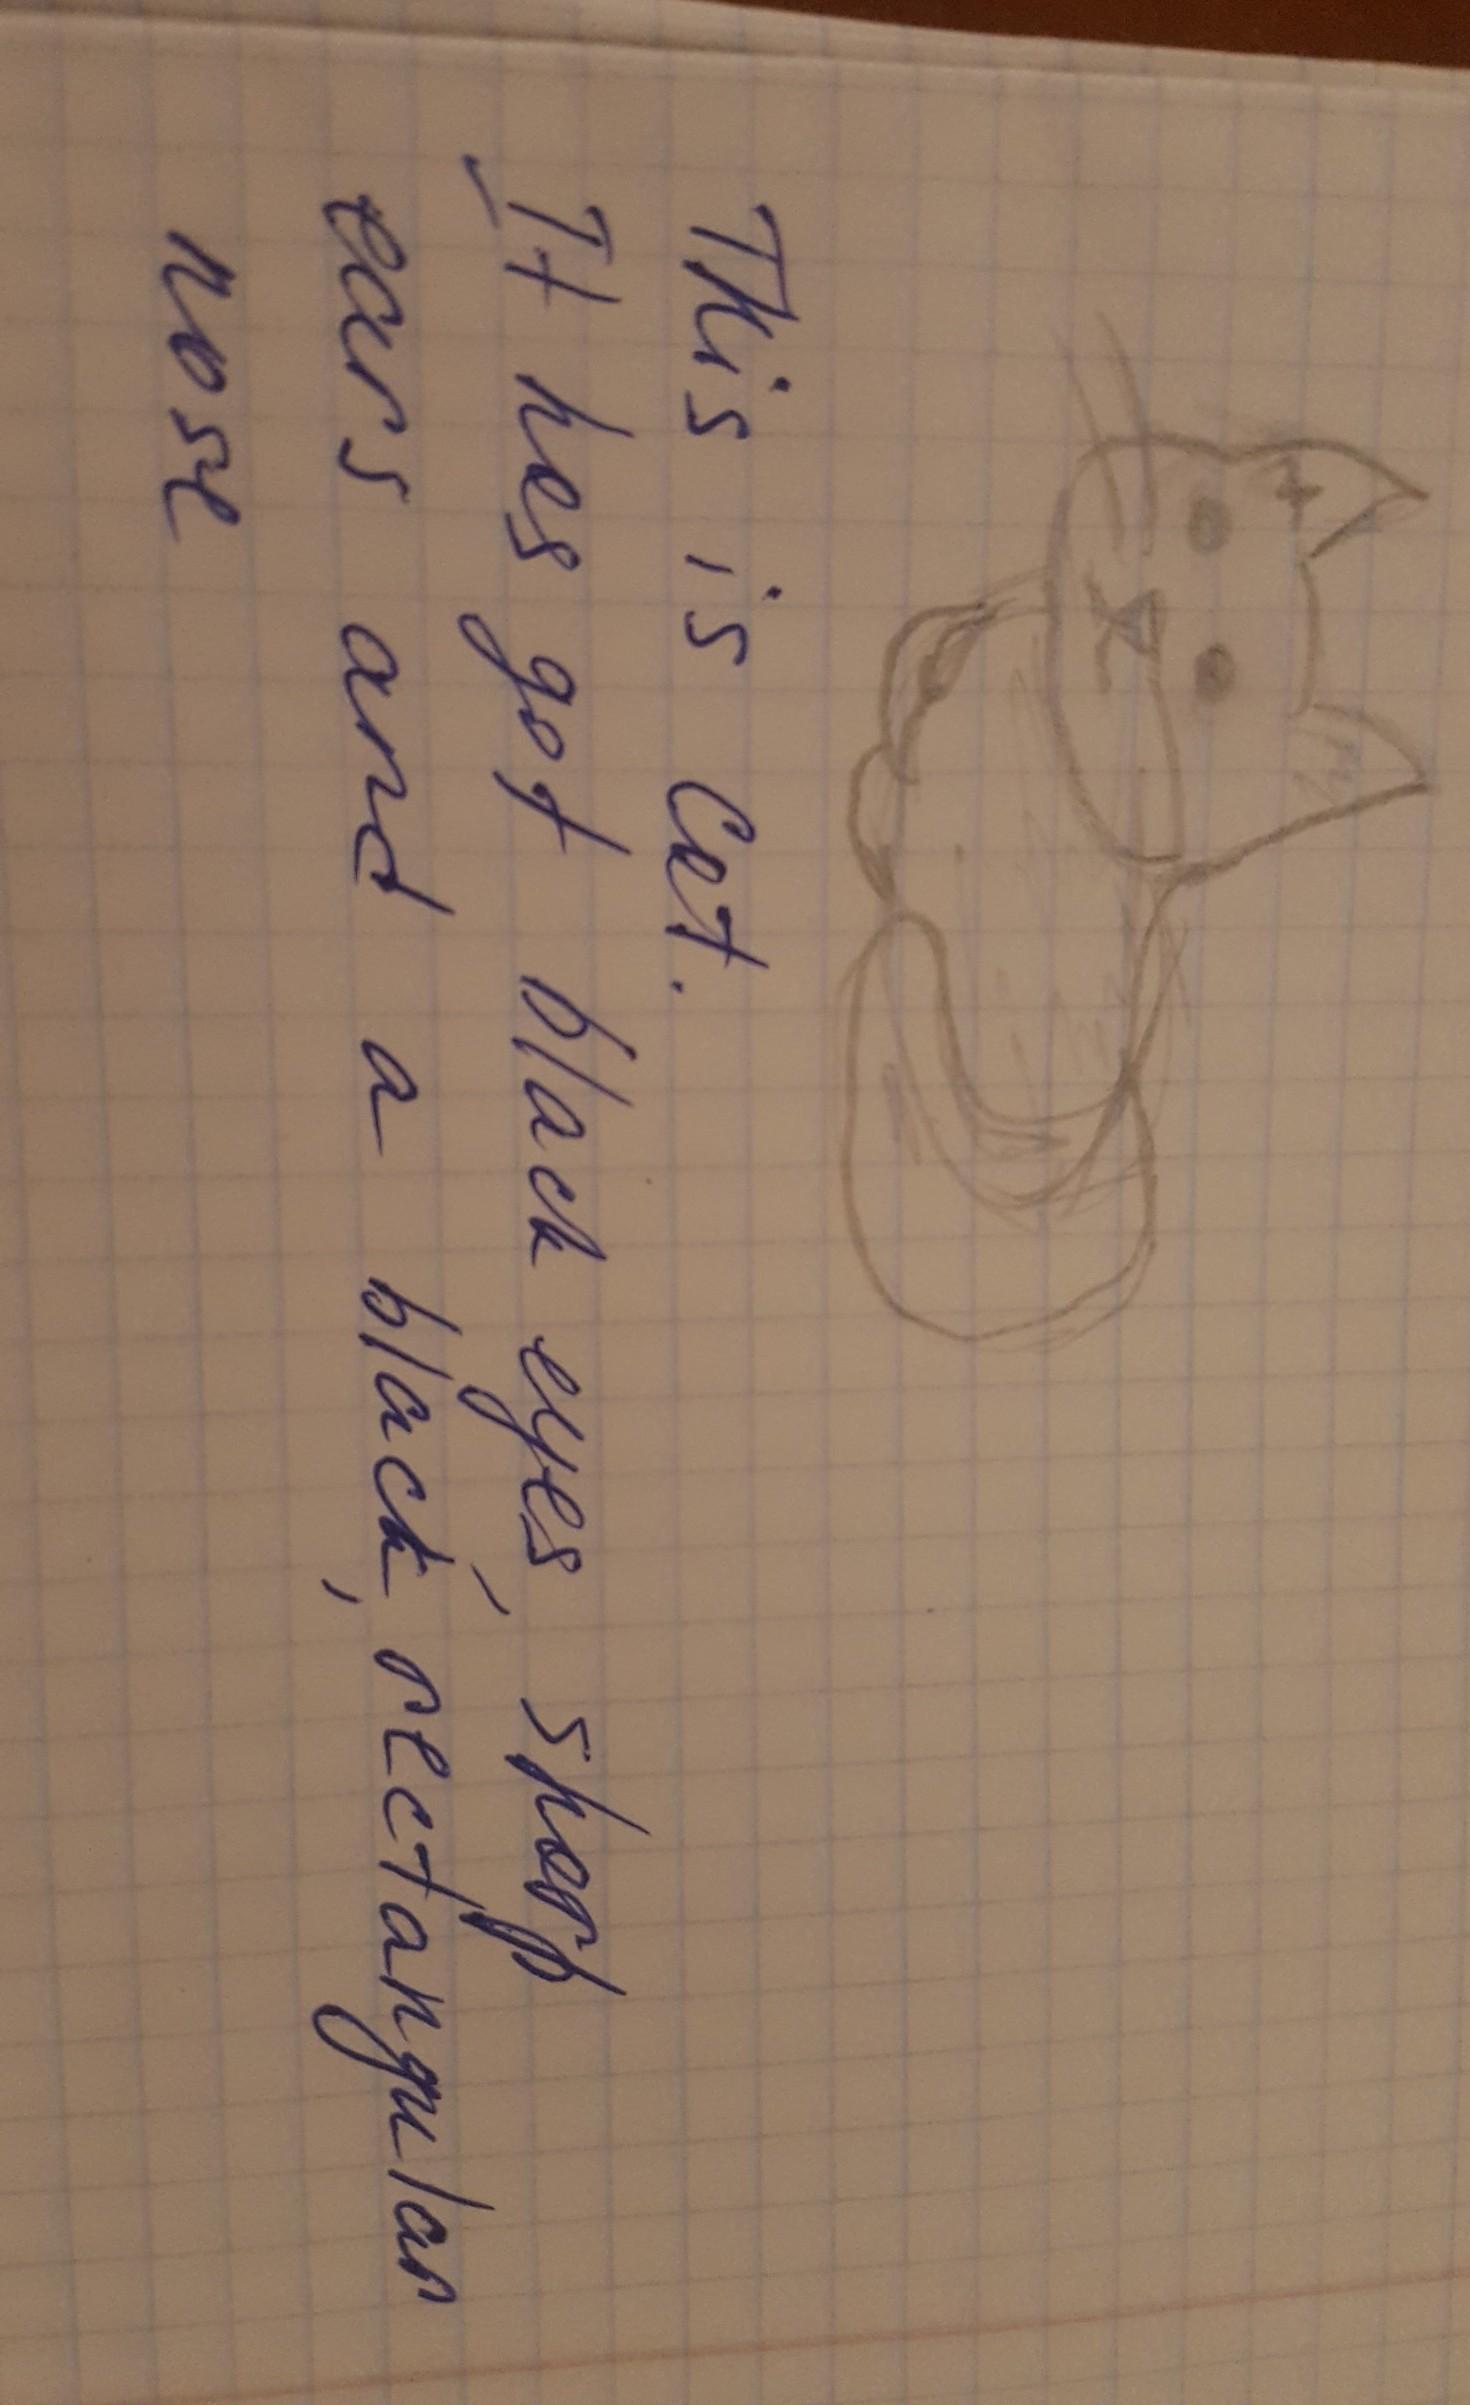 This is Cet.
It hes got black eyes, shorp
ears and a black, rectangular
nose